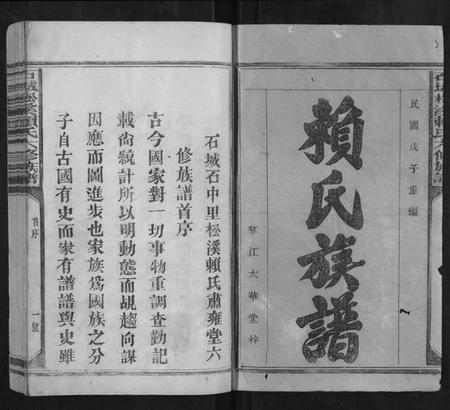 民國戊子重編
賴氏族譜
琴江大華堂梓
石城石中里松溪賴氏肅雍堂六
修族譜首序
古今國家對一切事物重調查勤記
載尚統計所以明動態而覘趨向謀
因應而圖進步也家族為國族之分
子自古國有史而家有譜譜與史雖
石城松溪賴氏六修族譜
首序
一號